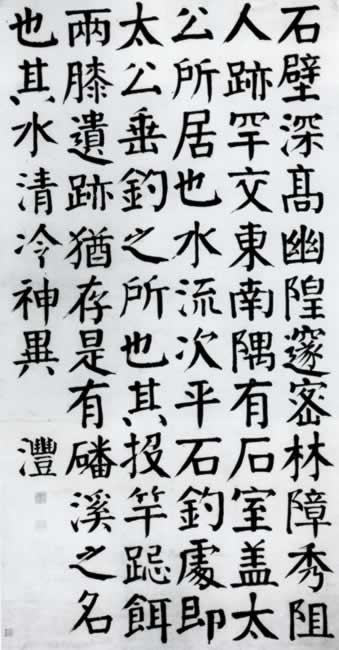 石壁深髙幽隍邃密林障秀阻
人跡罕交東南隅有石室盖太
公所居也水流次平石釣處即
太公垂釣之所也其投竿跽餌
兩膝遺跡猶存是有磻溪之名
也其水清冷神異
灃